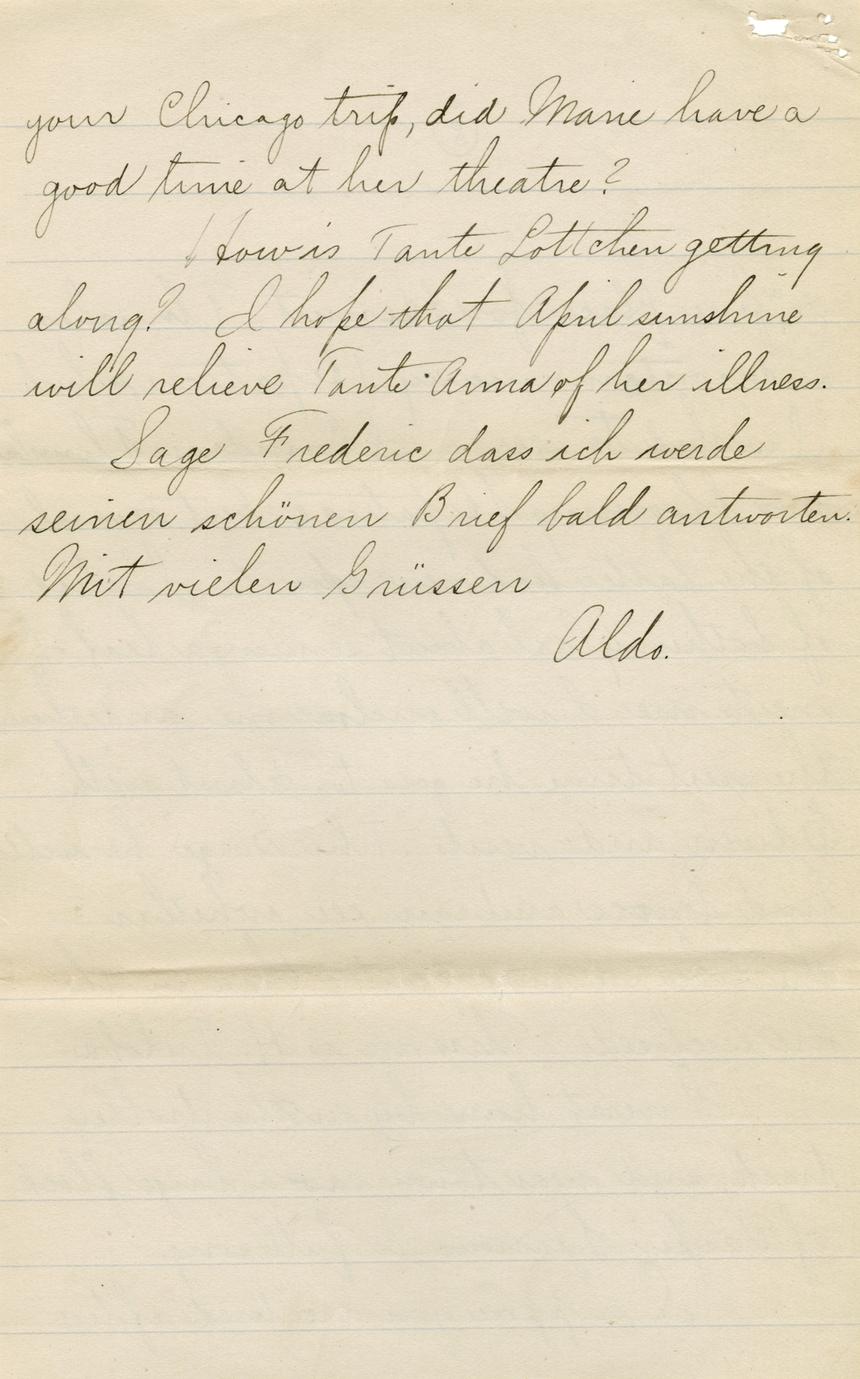 your Chicago trip, did Marie have a
good time at her theatre?
How is Tante Lottchen getting
along? I hope that April sunshine
will relieve Tante Anna of her illness.
Sage Frederic dass ich werde
seinen schönen Brief bald antworten.
Mit vielen Grüssen
Aldo.